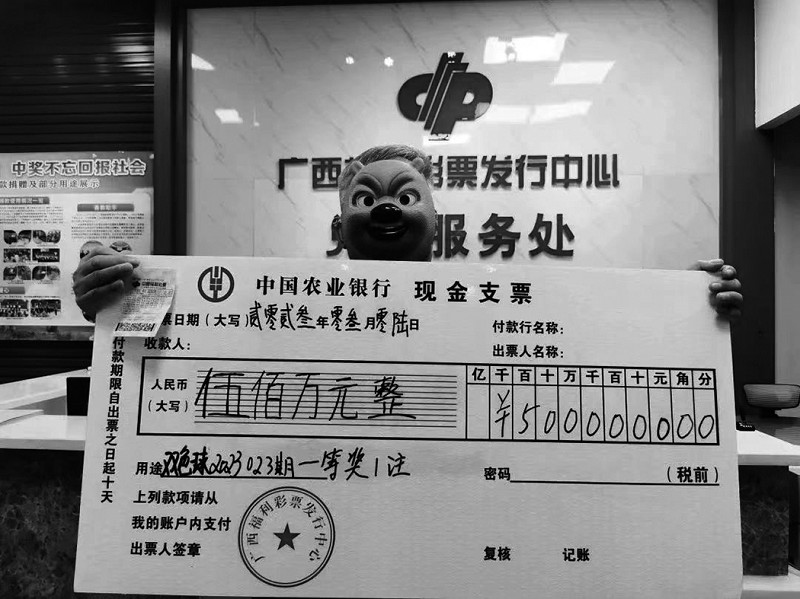 中奖不忘回报社会
款捐赠及部分用途展示
广西
彩票发行中心
服务处
中国农业银行 现金支票
票日期(大写)贰零贰叁年零叁月零陆日
付款行名称:
收款人:
出票人名称:
人民币
(大写)
伍佰万元整
亿千百十万千百十元角分
¥500000000
用途双色球2023023期一等奖1注
密码 (税前)
上列款项请从
我的账户内支付
出票人签章
复核 记账
付款期限自出票之日起十天
广西福利彩票发行中心